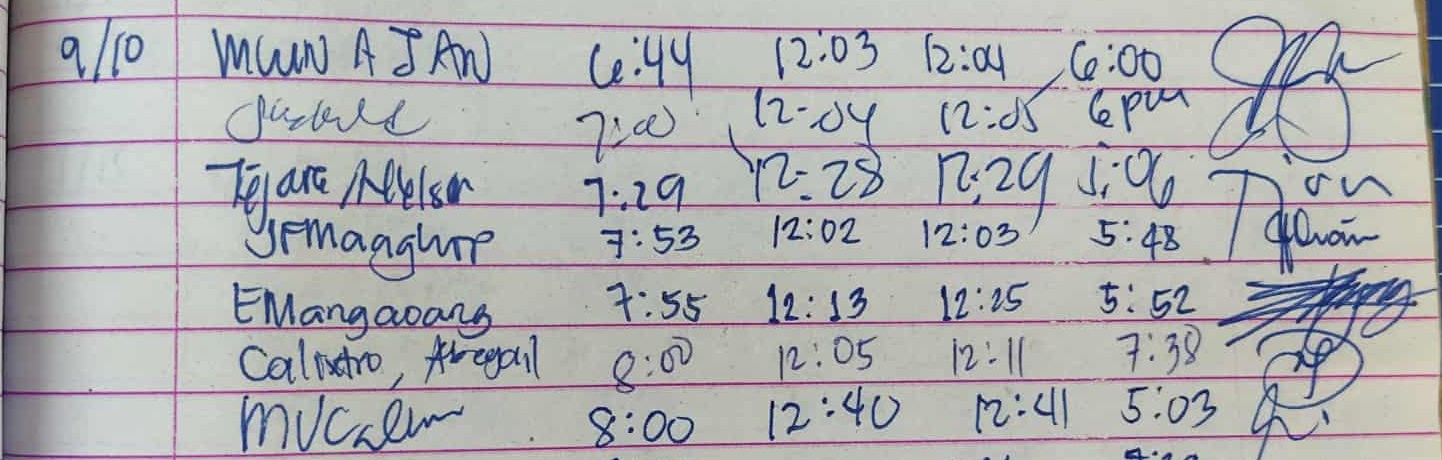 9/10 MUN A JAN 6:44 12:03 12:04 6:00
7:00 12-04 12:05 6pm
Tejare 7:29 12:28 12:29 5:06
7:53 12:02 12:03 5:48
EMangaoang 7:55 12:13 12:25 5:52
Calixtro, Abegail 8:00 12:05 12:11 7:38
8:00 12:40 12:41 5:03